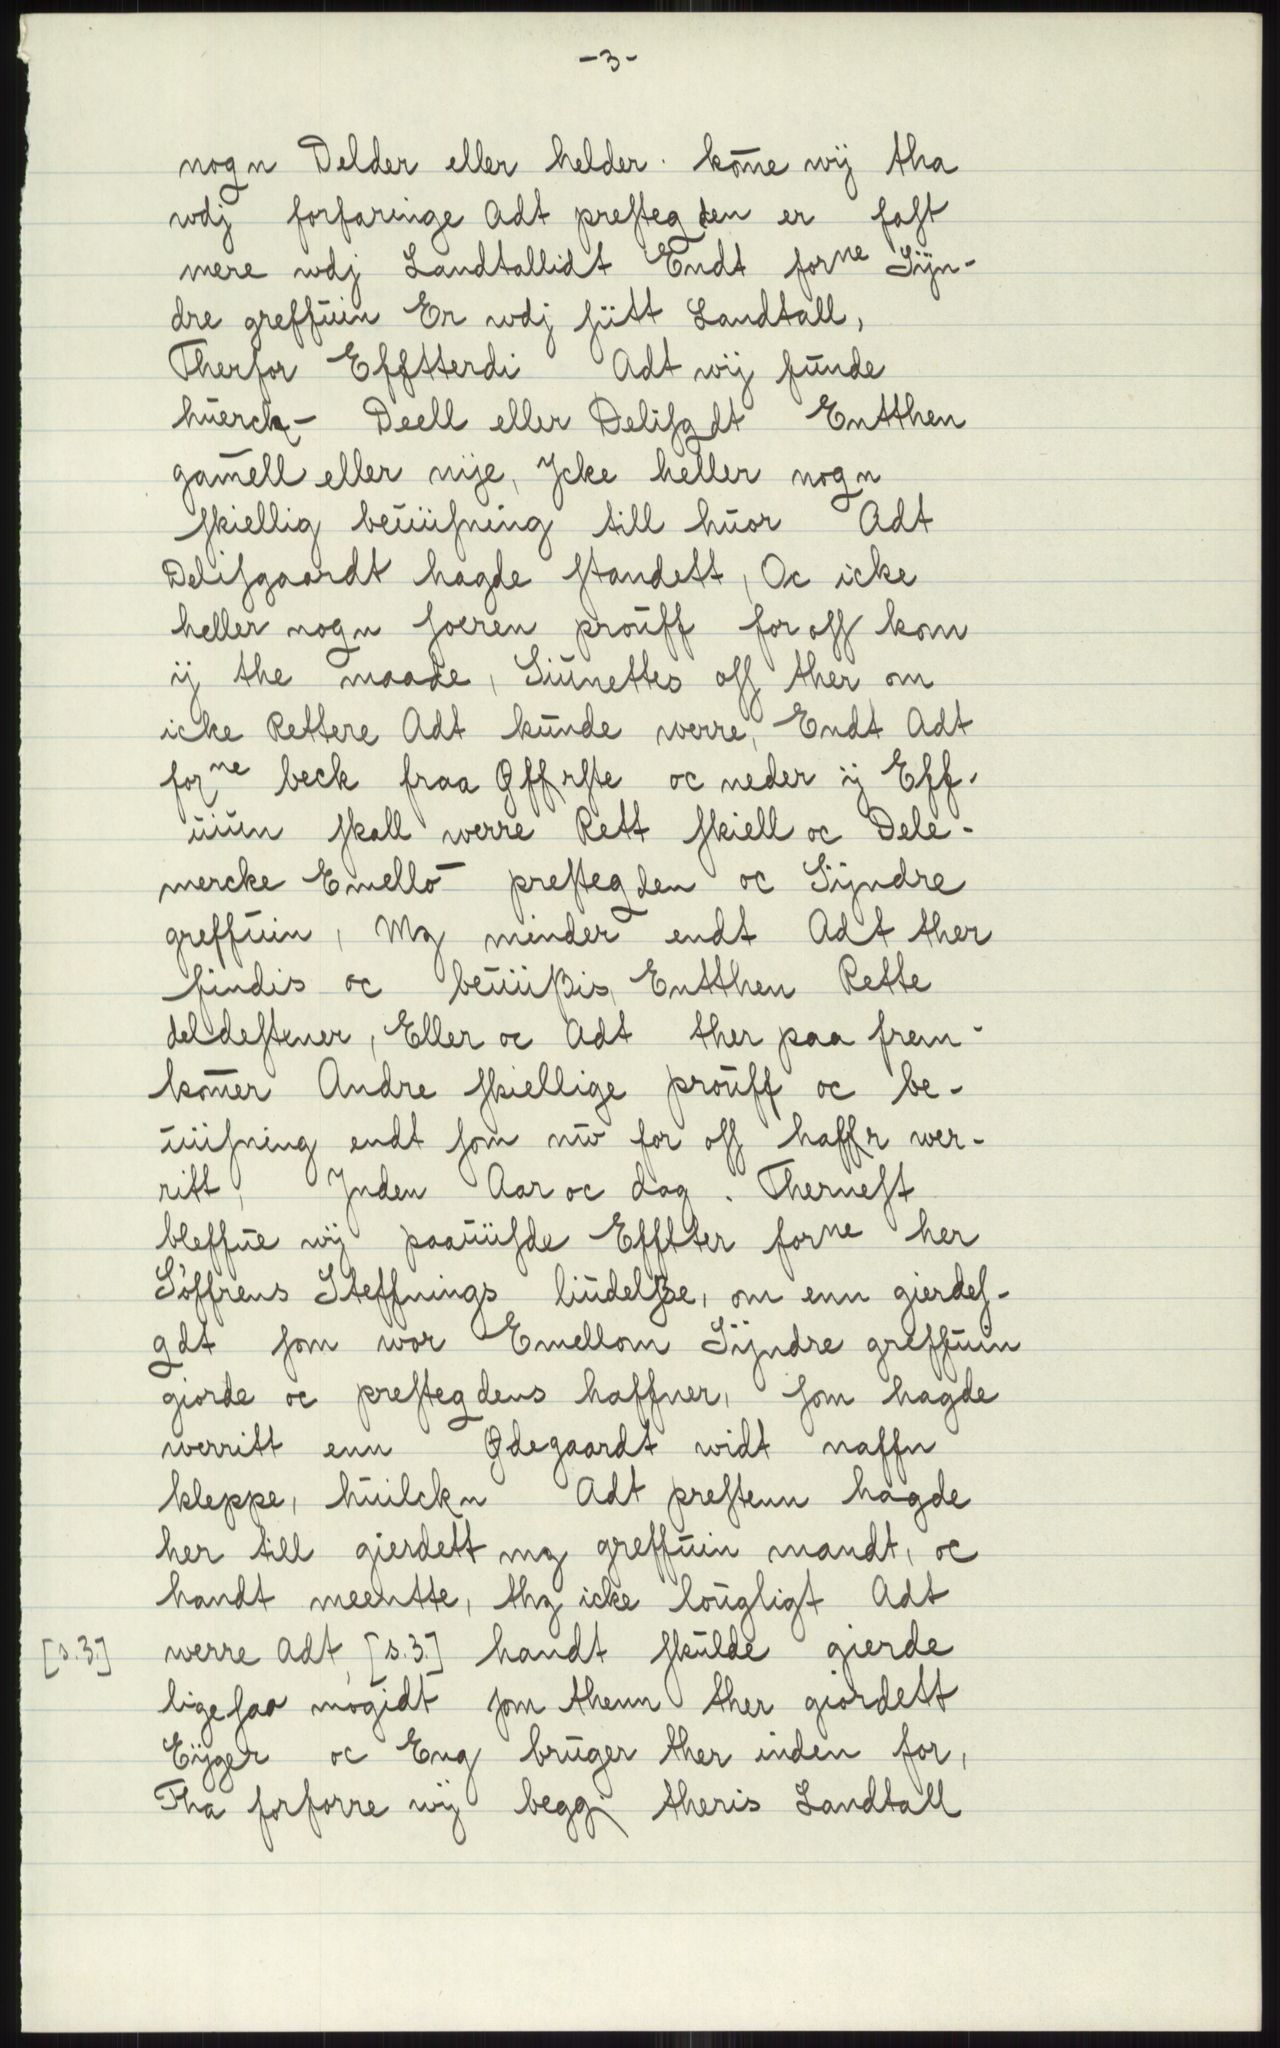 -3-
nogn Delder eller helder. kom̄e wij tha
wdj forfaringe Adt presteg den er fast
mere wdj Landtallidt Endt forne Sÿn-
dre greffuin Er wdj sitt Landtall,
Therfor Effterdi Adt wij funde
huerck- Deell eller Delisgdt Entthen
gam̄ell eller nije, Jcke heller nogn
skiellig beuiisning till huor Adt
Delisgaardt hagde standett, Oc icke
heller nogn soeren prouff for oss kom
ij the maade, Siunettes oss ther om
icke Rettere Adt kunde werre, Endt Adt
forne beck fraa Øffrste oc neder ij Eff-
uiun skall werre Rett skiell oc Dele-
mercke Emello- presteg den oc Sÿndre
greffuin, Mz minder endt Adt ther
findis oc beuiißis, Entthen Rette
deldestener, Eller oc Adt ther paa frem-
kom̄er Andre skiellige prouff oc be-
uiisning endt som nw for oss haffr wer-
ritt, Jnden Aar oc dag. Thernest
bleffue wij paauiisde Effter forne her
Søffrens Steffnings liudelße, om enn gierdes-
gdt som wor Emellom Sÿndre greffuin
giorde oc presteg dens haffner, som hagde
werritt enn Ødegaardt widt naffn
kleppe, huilckn Adt prestenn hagde
her till gierdett mz greffuin mandt, oc
handt meentte, thz icke lougligt Adt
[s.3.] werre Adt, [s.3.] handt skulde gierde
lige saa mogidt som thenn ther giordett
Eÿger oc Eng bruger ther inden for,
Tha forforre wij begg theris Landtall